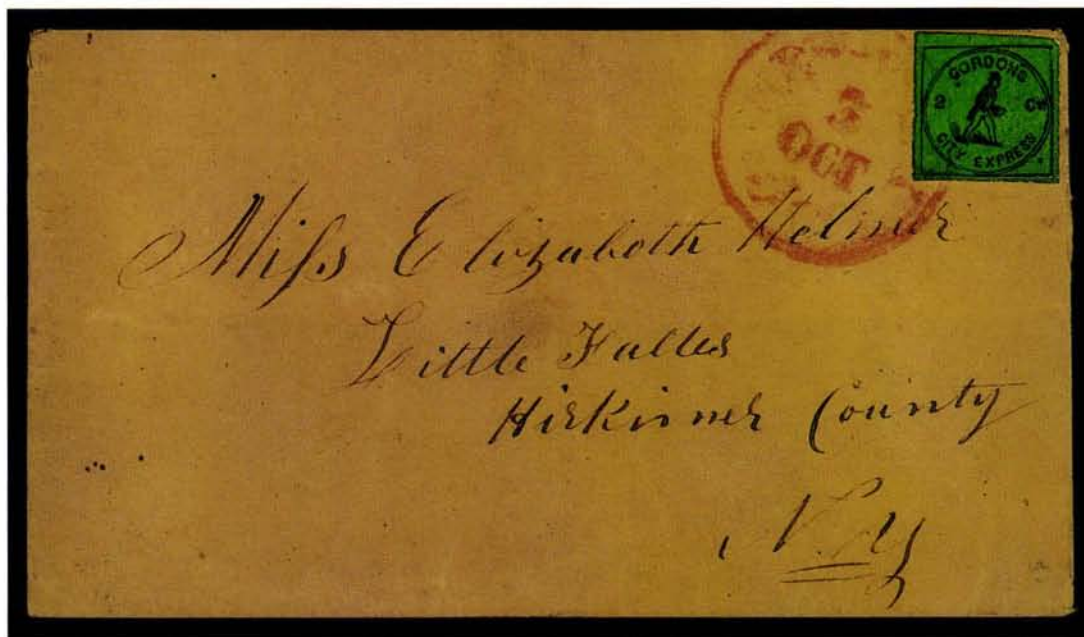 GORDONS
2 Cts
CITY EXPRESS
5
OCT
Miſs Elizabeth Helmer
Little Falles
Hirkimer County
N.Y